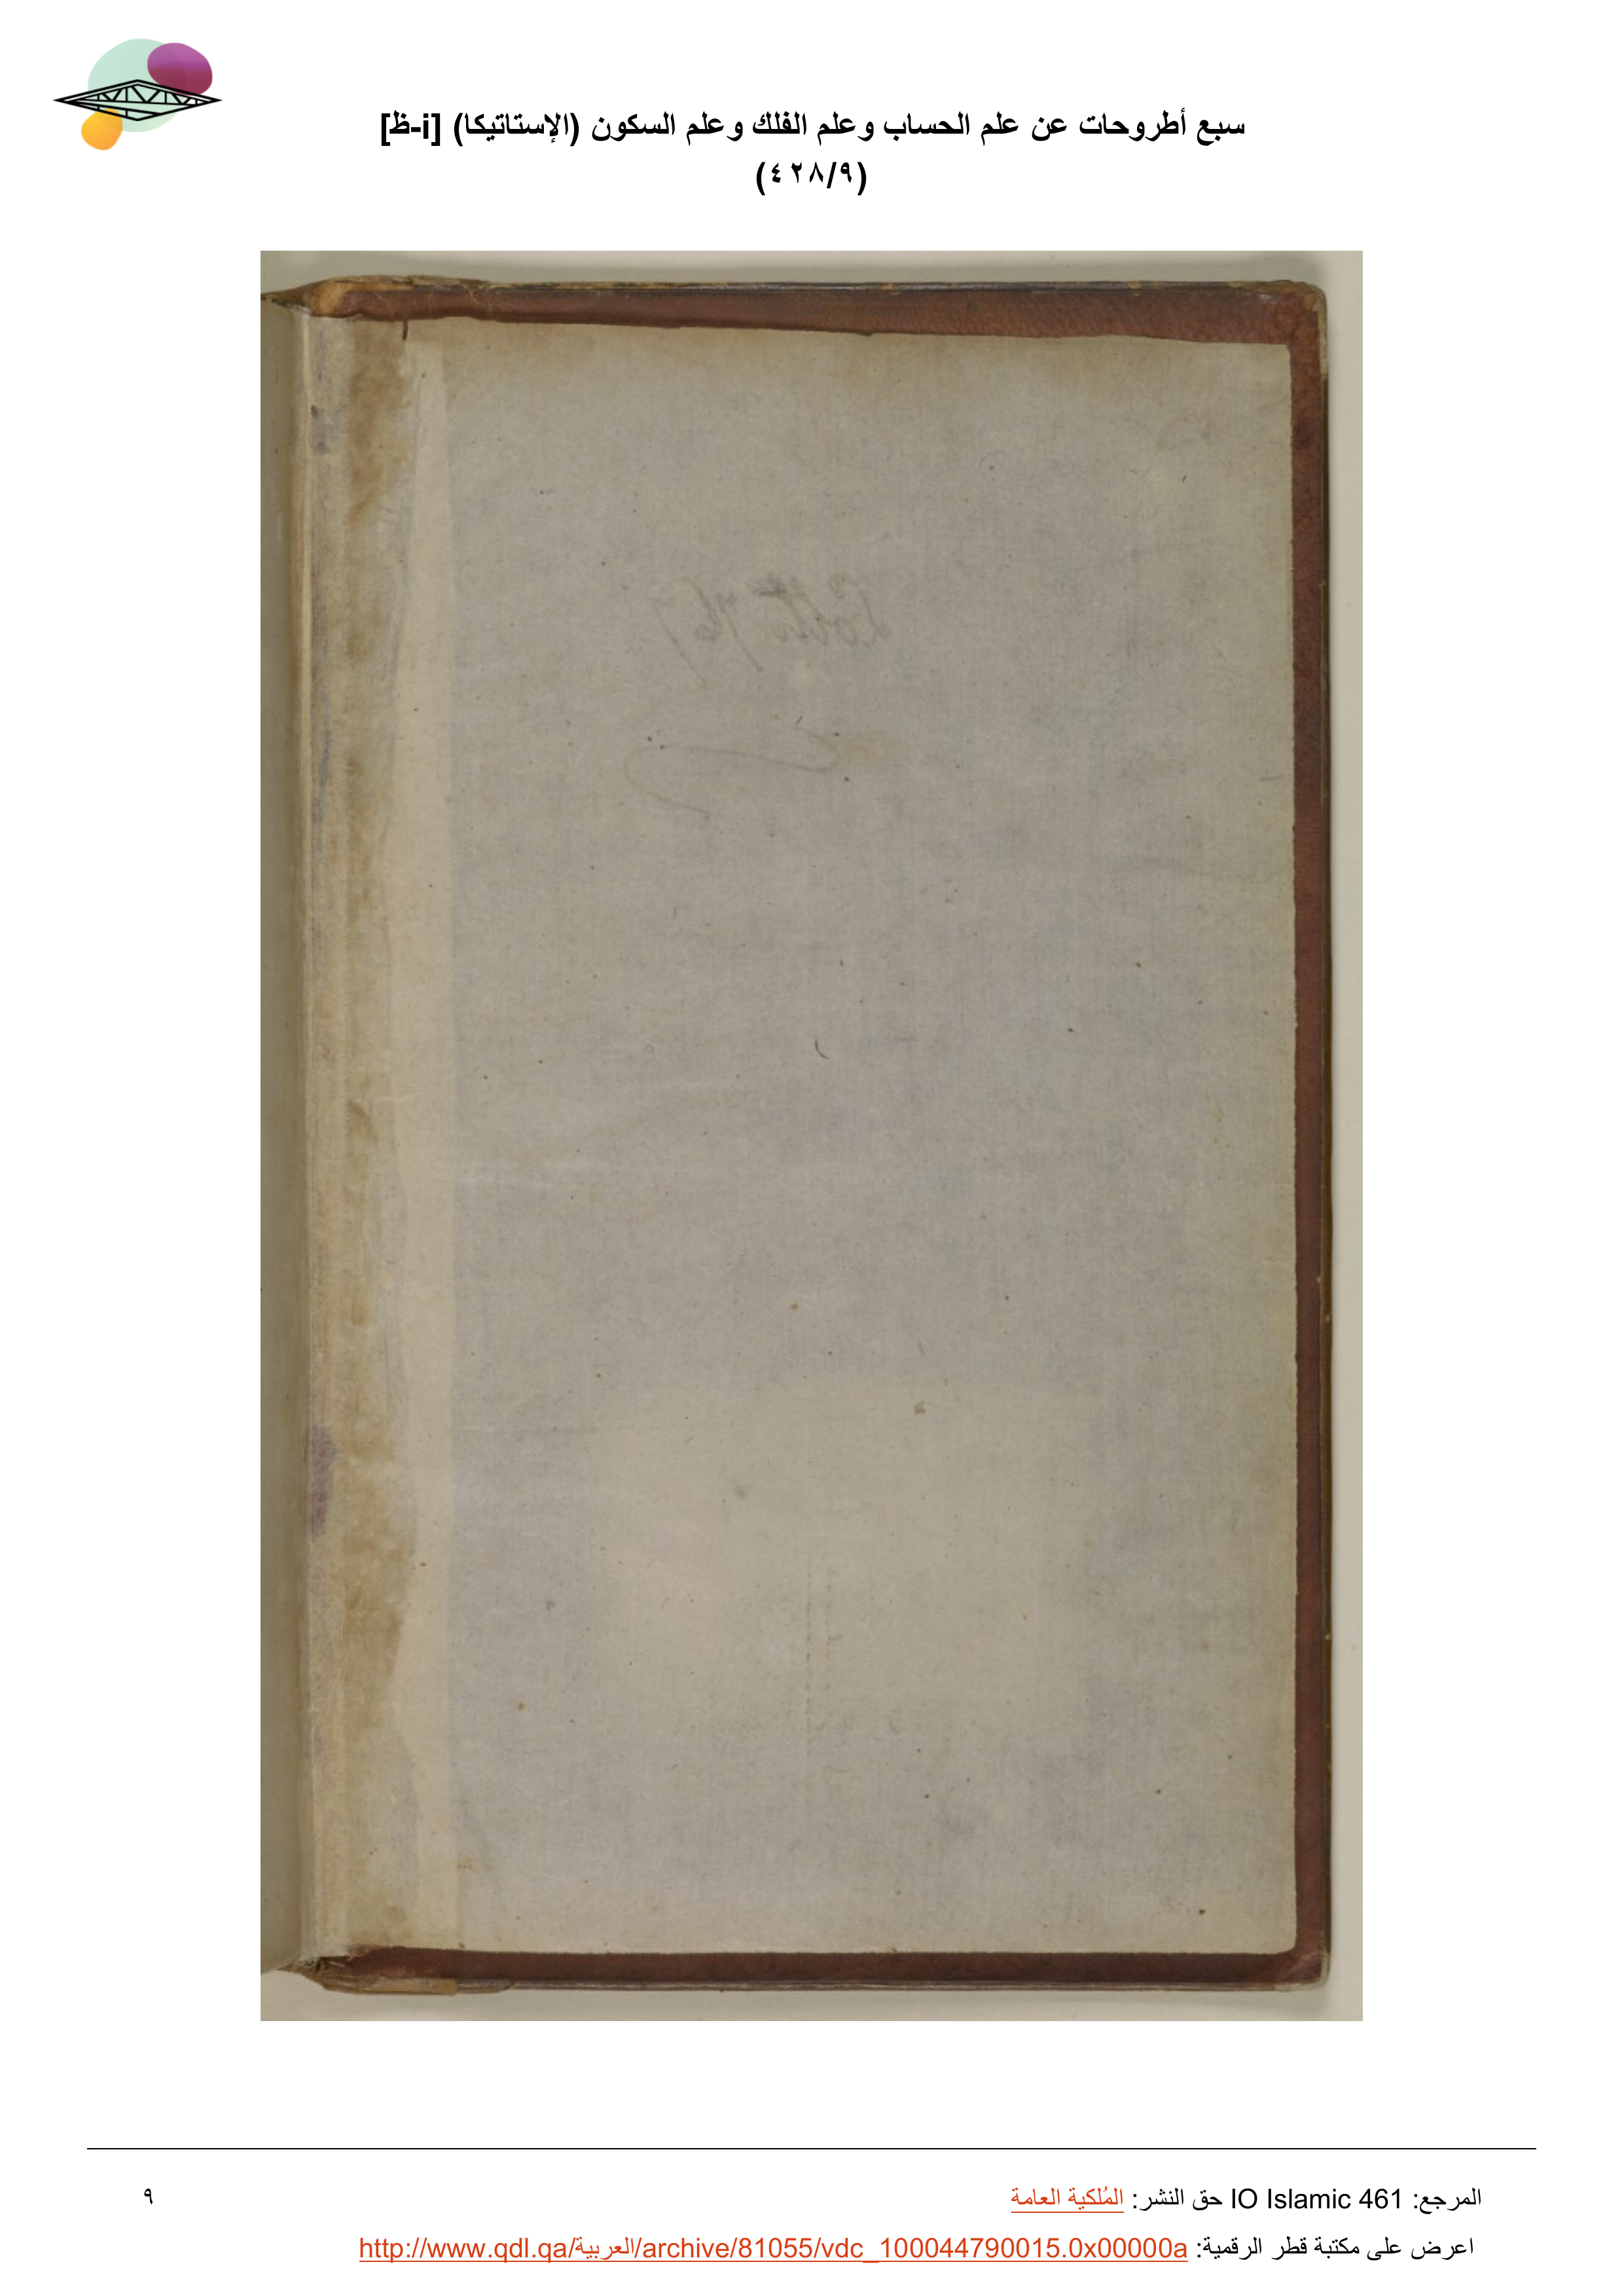 سبع أطروحات عن علم الحساب وعلم الفلك وعلم السكون (الإستاتيكا) [i-ظ]
(٤٢٨/٩)
المرجع: IO Islamic 461 حق النشر: المُلكية العامة
٩
اعرض على مكتبة قطر الرقمية: http://www.qdl.qa/العربية/archive/81055/vdc_100044790015.0x00000a